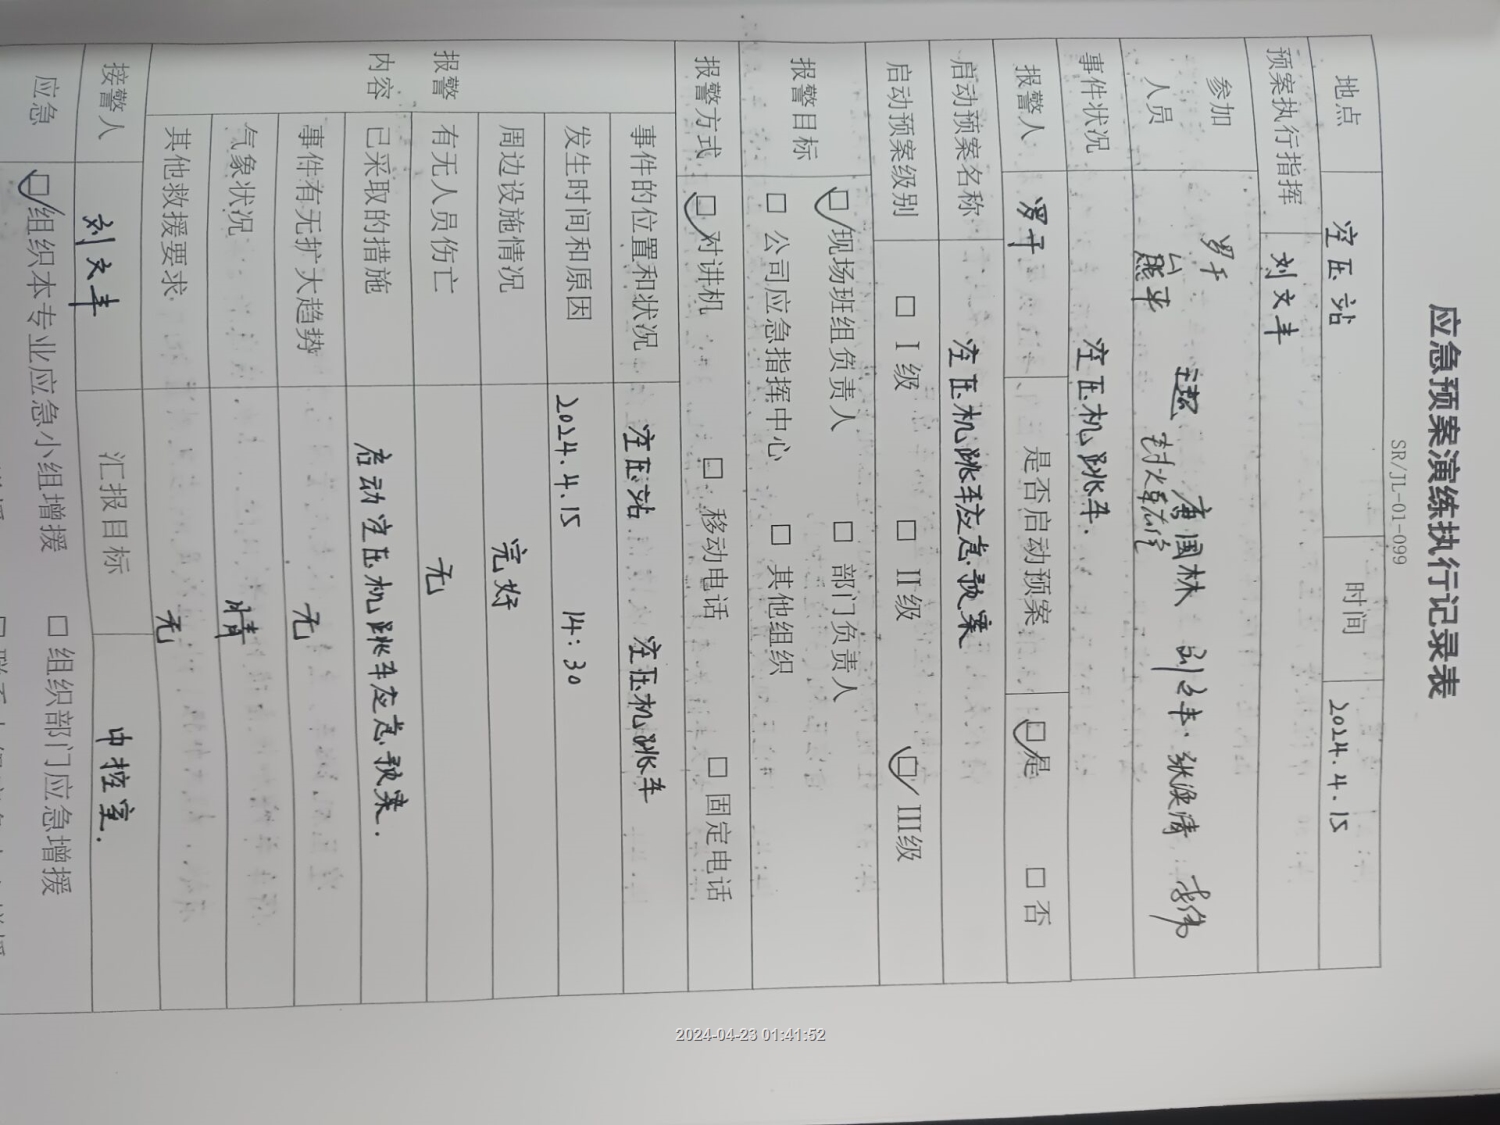 应急预案演练执行记录表
SR/JL-01-099
地点 空压站 时间 2024.4.15
预案执行指挥 刘文丰
参加人员 罗千 熊平 唐国林 刘文丰. 张焕清 李伟
事件状况 空压机跳车.
报警人 罗千 是否启动预案 ☑是 □否
启动预案名称 空压机跳车应急预案
启动预案级别 □ I级 □ II级 ☑ III级
报警目标 ☑现场班组负责人 □ 部门负责人
□ 公司应急指挥中心 □ 其他组织
报警方式 ☑对讲机 □ 移动电话 □ 固定电话
报警内容 事件的位置和状况 空压站 空压机跳车
发生时间和原因 2024.4.15 14:30
周边设施情况 完好
有无人员伤亡 无
已采取的措施 启动空压机跳车应急预案.
事件有无扩大趋势 无
气象状况 晴
其他救援要求 无
接警人 刘文丰 汇报目标 中控室.
应急 ☑组织本专业应急小组增援 □ 组织部门应急增援
2024-04-23 01:41:52